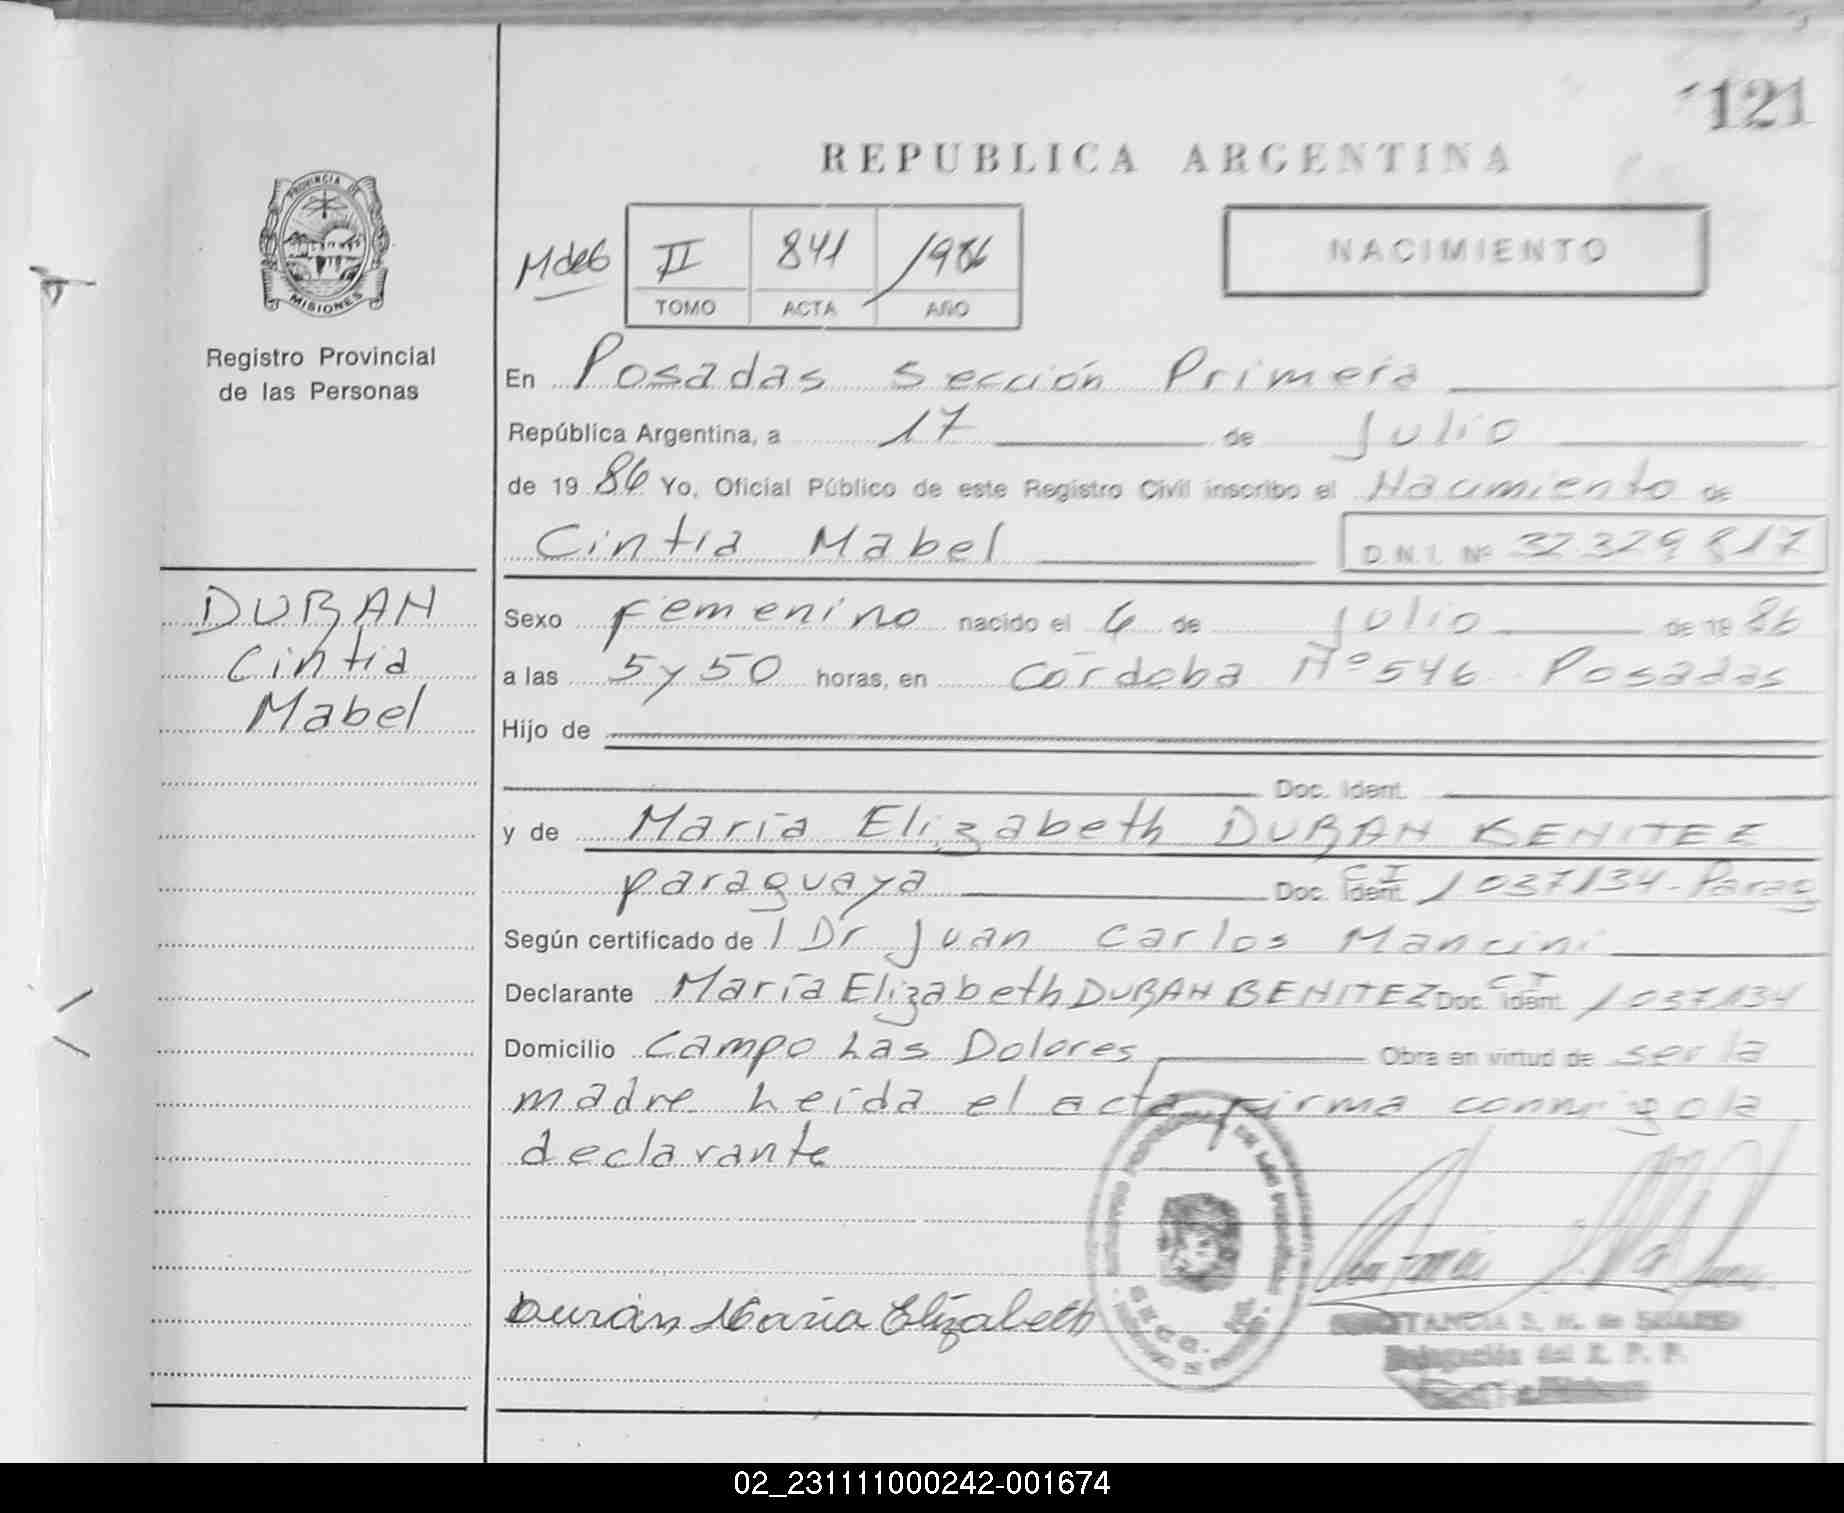 121
REPUBLICA ARGENTINA
PROVINCIA DE
MISIONES
Registro Provincial
de las Personas
MdeG
II 841 1986
TOMO ACTA AÑO
NACIMIENTO
En Posadas Sección Primera
República Argentina, a 17 de Julio
de 1986 Yo, Oficial Público de este Registro Civil inscribo el Nacimiento de
Cintia Mabel D.N.I. Nº 32.329.817
DURAN
Cintia
Mabel
Sexo femenino nacido el 6 de Julio de 1986
a las 5 y 50 horas, en Córdoba Nº 546 Posadas
Hijo de
Doc. Ident.
y de María Elizabeth DURAN BENITEZ
paraguaya Doc. Ident. C I 1037134 - Parag
Según certificado de l Dr Juan Carlos Mancini
Declarante María Elizabeth DURAN BENITEZ Doc. Ident. C I 1037134
Domicilio Campo Las Dolores Obra en virtud de ser la
madre Leída el acta firma conmigo la
declarante
Durán María Elizabeth
Delegación del R. P. P.
02_231111000242-001674